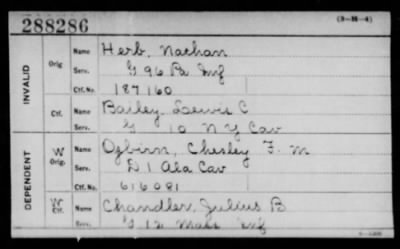 288286
(3-M-4)
INVALID
Orig
Name Herb, Nathan
Serv. G 96 Pa Inf
Ctf. No. 187160
Ctf.
Name Bailey, Lewis C
Serv. G 10 N Y Cav
DEPENDENT
W
Orig.
Name Ogbirn, Chesley F. M
Serv. D 1 Ala Cav
Ctf. No. 616081
W
Ctf.
Name Chandler, Julius B
Serv. G 12 Mass Inf